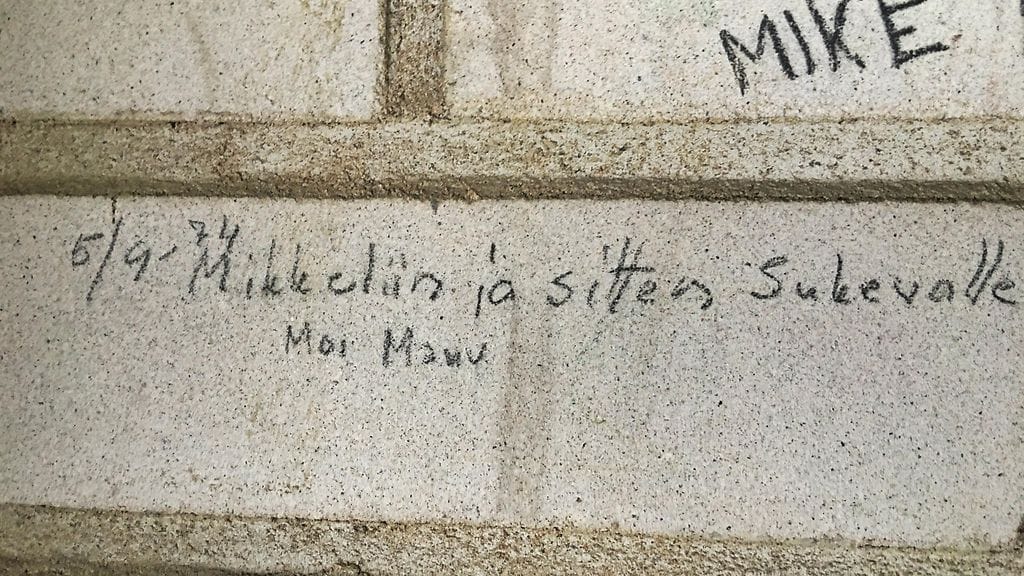 MIKE
5/9-74 Mikkeliin ja sitten Sukevalle
Moi Manu